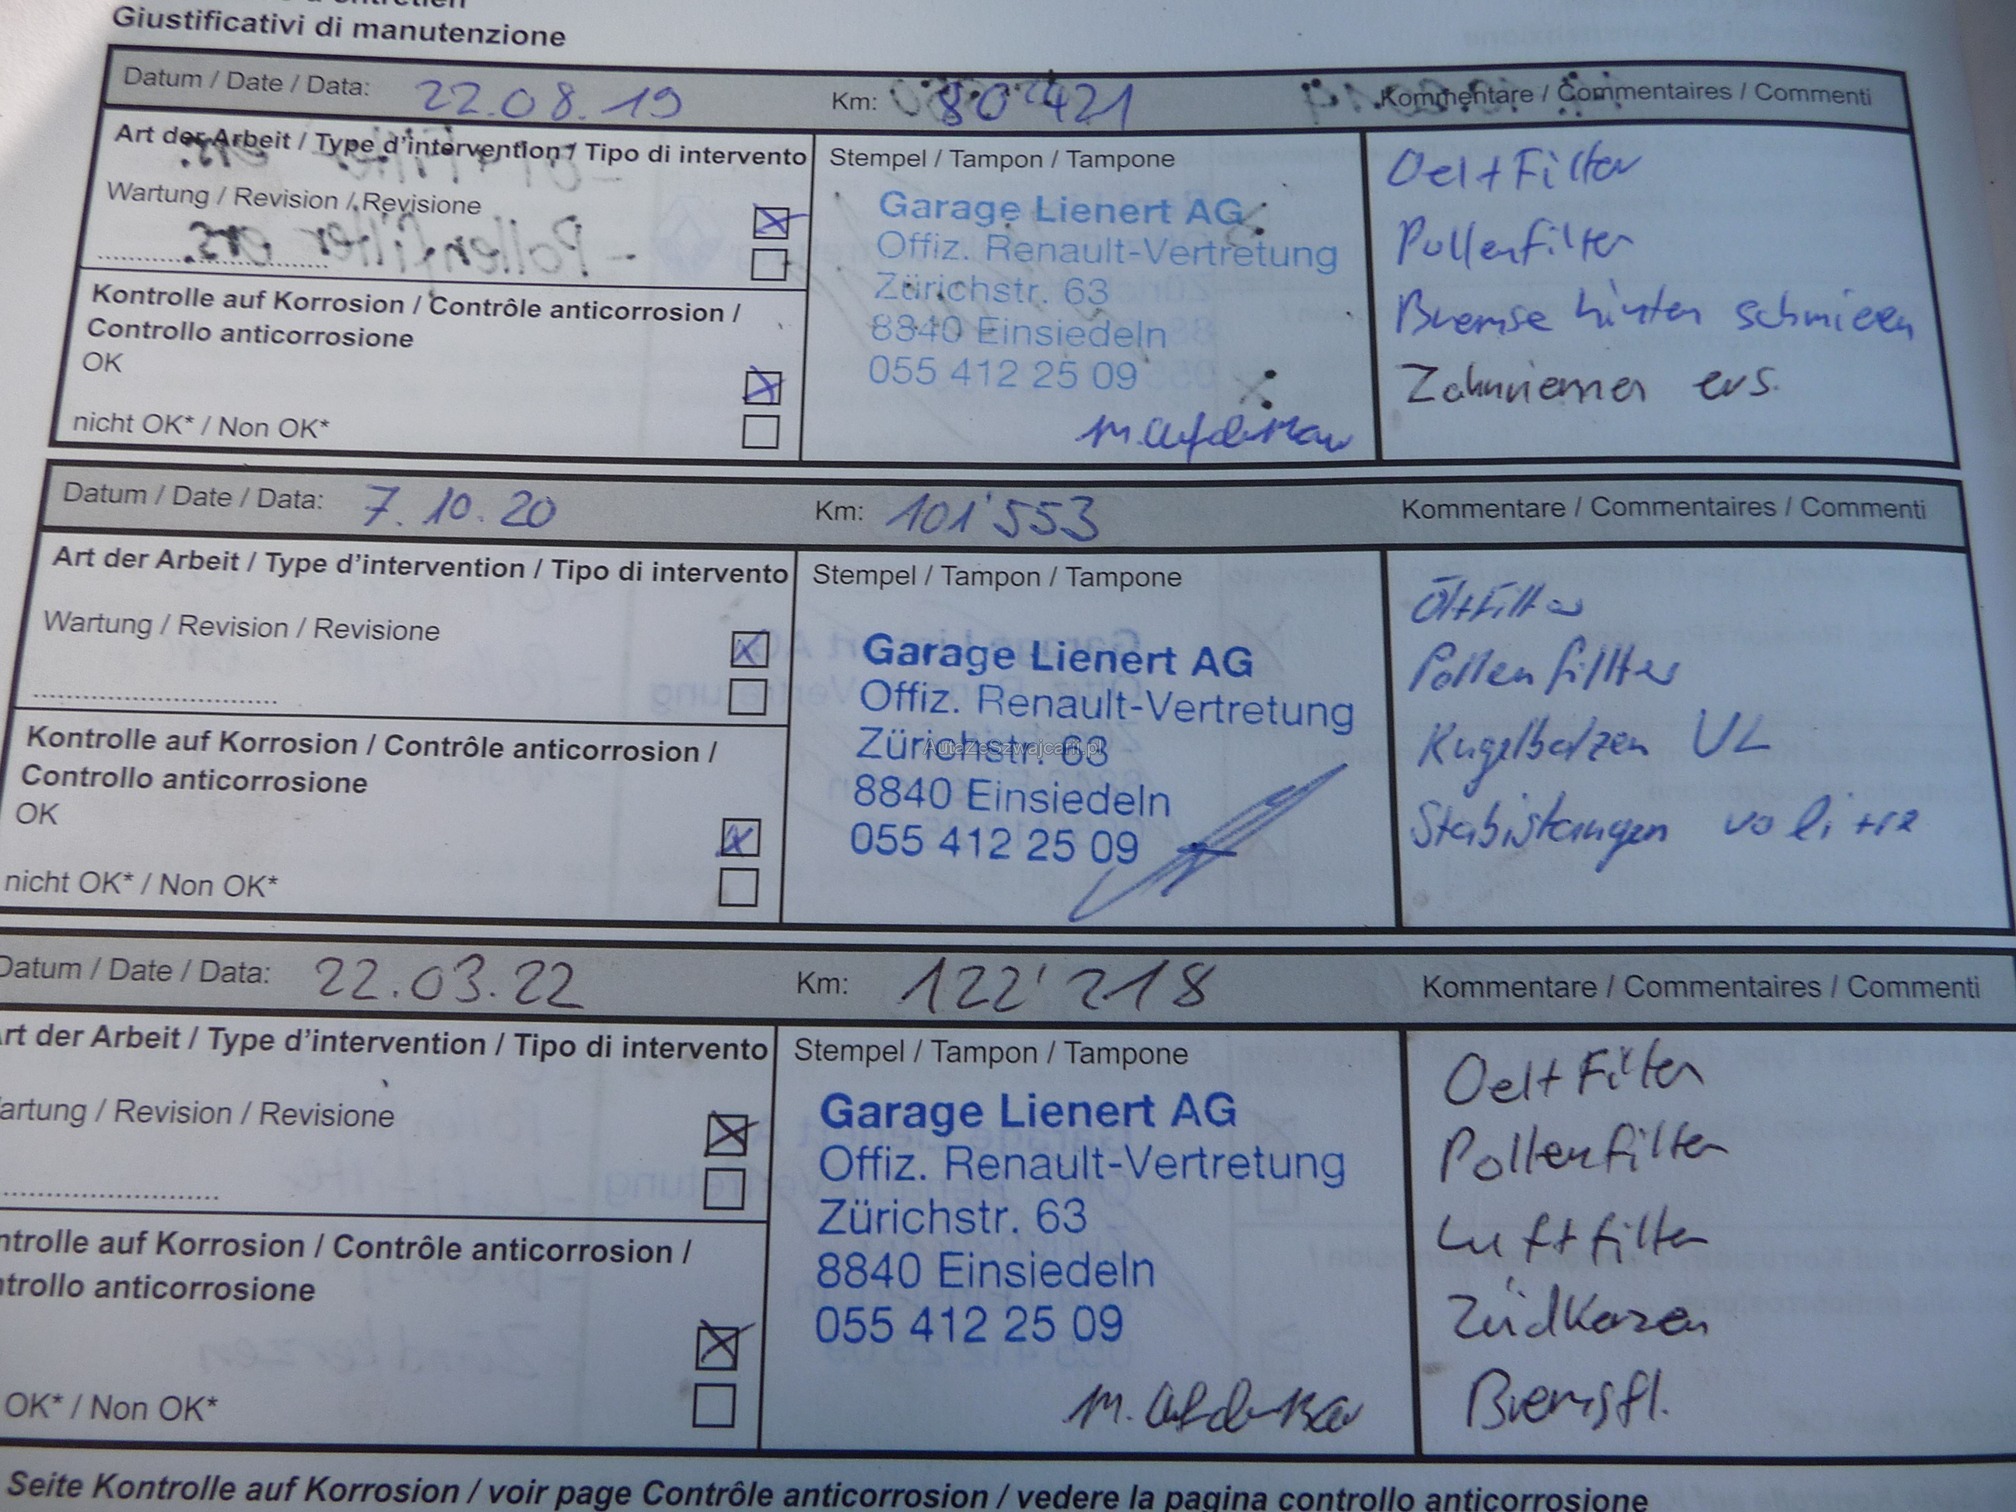 Giustificativi di manutenzione
Datum / Date / Data: 22.08.19 Km: 80'421 Kommentare / Commentaires / Commenti
Art der Arbeit / Type d'intervention / Tipo di intervento
Wartung / Revision / Revisione
Kontrolle auf Korrosion / Contrôle anticorrosion /
Controllo anticorrosione
OK
nicht OK* / Non OK*
Stempel / Tampon / Tampone
Garage Lienert AG
Offiz. Renault-Vertretung
Zürichstr. 63
8840 Einsiedeln
055 412 25 09
Oel+Filter
Pollenfilter
Bremse hinten schmieren
Zahnriemen ers.
Datum / Date / Data: 7.10.20 Km: 101'553 Kommentare / Commentaires / Commenti
Art der Arbeit / Type d'intervention / Tipo di intervento
Wartung / Revision / Revisione
Kontrolle auf Korrosion / Contrôle anticorrosion /
Controllo anticorrosione
OK
nicht OK* / Non OK*
Stempel / Tampon / Tampone
Garage Lienert AG
Offiz. Renault-Vertretung
Zürichstr. 63
AutaZeSzwajcarii.pl
8840 Einsiedeln
055 412 25 09
Öl+Filter
Pollenfillter
Kugelbolzen UL
Stabistangen vo li +re
Datum / Date / Data: 22.03.22 Km: 122'218 Kommentare / Commentaires / Commenti
rt der Arbeit / Type d'intervention / Tipo di intervento
artung / Revision / Revisione
ntrolle auf Korrosion / Contrôle anticorrosion /
trollo anticorrosione
OK* / Non OK*
Stempel / Tampon / Tampone
Garage Lienert AG
Offiz. Renault-Vertretung
Zürichstr. 63
8840 Einsiedeln
055 412 25 09
Oel+Filter
Pollenfilter
Luftfilter
Züdkerzen
Bremsfl.
Seite Kontrolle auf Korrosion / voir page Contrôle anticorrosion / vedere la pagina controllo anticorrosione